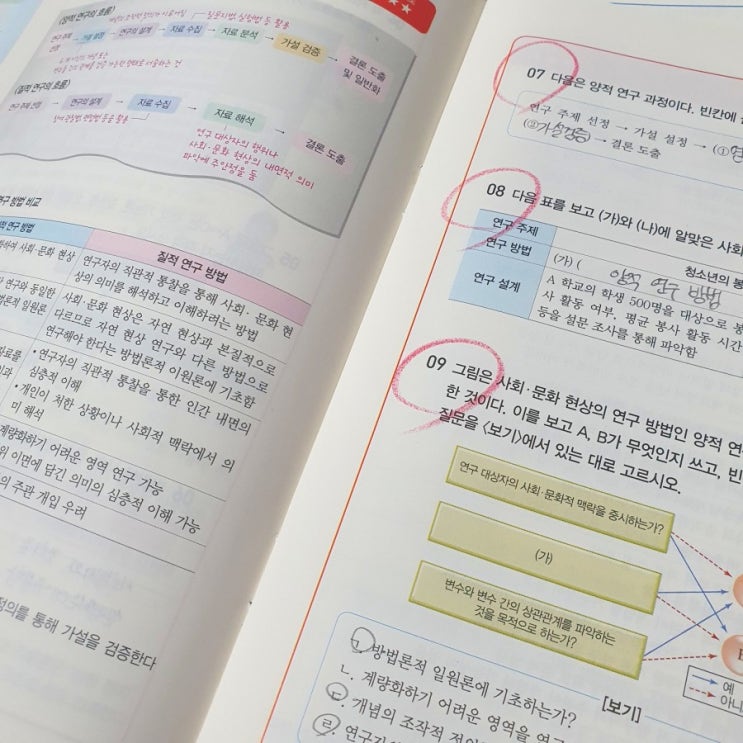 (양적 연구의 흐름)
연구 주제 선정 → 가설 설정 → 연구의 설계 → 자료 수집 → 자료 분석 → 가설 검증 → 결론 도출 및 일반화
(질적 연구의 흐름)
연구 주제 선정 → 연구의 설계 → 자료 수집 → 자료 해석 → 결론 도출
연구 대상자의 행위나
사회·문화 현상의 내면적 의미
파악에 주안점을 둠
연구 방법 비교
양적 연구 방법
질적 연구 방법
하여 사회·문화 현상
연구자의 직관적 통찰을 통해 사회·문화 현
상의 의미를 해석하고 이해하려는 방법
연구와 동일한
론적 일원론
사회·문화 현상은 자연 현상과 본질적으로
다르므로 자연 현상 연구와 다른 방법으로
연구해야 한다는 방법론적 이원론에 기초함
• 연구자의 직관적 통찰을 통한 인간 내면의
심층적 이해
• 개인이 처한 상황이나 사회적 맥락에서 의
미 해석
계량화하기 어려운 영역 연구 가능
위 이면에 담긴 의미의 심층적 이해 가능
의 주관 개입 우려
정의를 통해 가설을 검증한다
07 다음은 양적 연구 과정이다. 빈칸에
연구 주제 선정 → 가설 설정 → (①
(②가설검증) → 결론 도출
08 다음 표를 보고 (가)와 (나)에 알맞은 사회
연구 주제
청소년의 봉
연구 방법
(가) ( 양적 연구 방법
연구 설계
A 학교의 학생 500명을 대상으로 봉
사 활동 여부, 평균 봉사 활동 시간
등을 설문 조사를 통해 파악함
09 그림은 사회·문화 현상의 연구 방법인 양적 연
한 것이다. 이를 보고 A, B가 무엇인지 쓰고, 빈
질문을 <보기>에서 있는 대로 고르시오.
연구 대상자의 사회·문화적 맥락을 중시하는가?
(가)
변수와 변수 간의 상관관계를 파악하는
것을 목적으로 하는가?
예
아니
[보기]
ㄱ. 방법론적 일원론에 기초하는가?
ㄴ. 계량화하기 어려운 영역을 연구
ㄷ. 개념의 조작적 정의
ㄹ. 연구자의